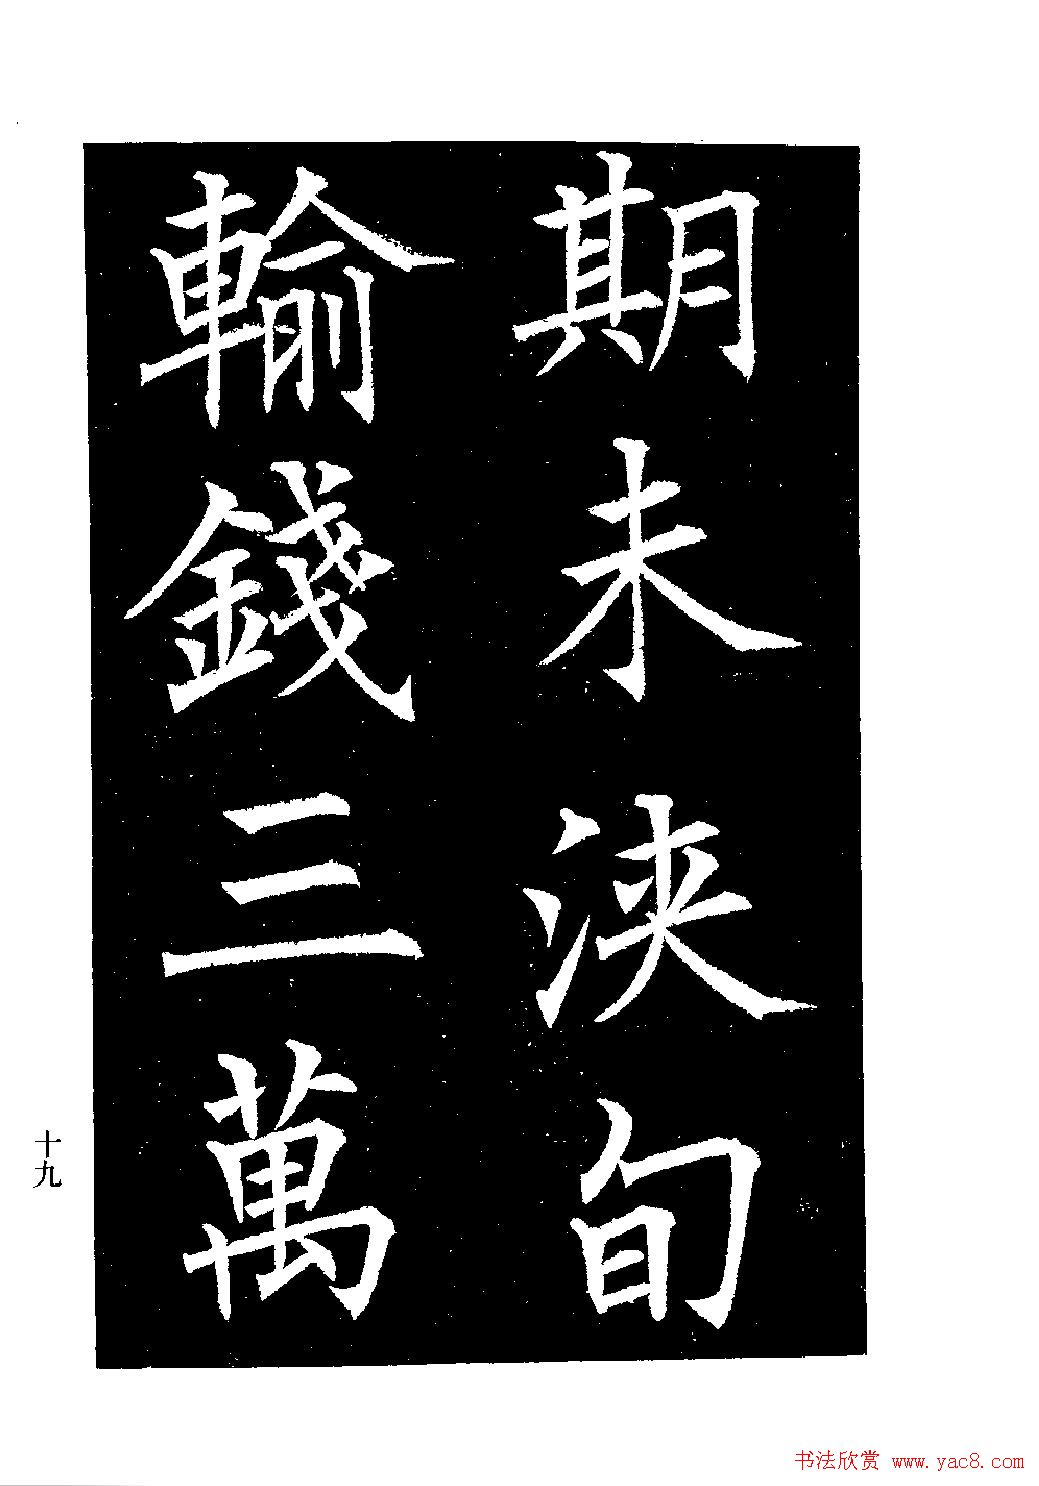 期未浹旬
輸錢三萬
十九
书法欣赏 www.yac8.com